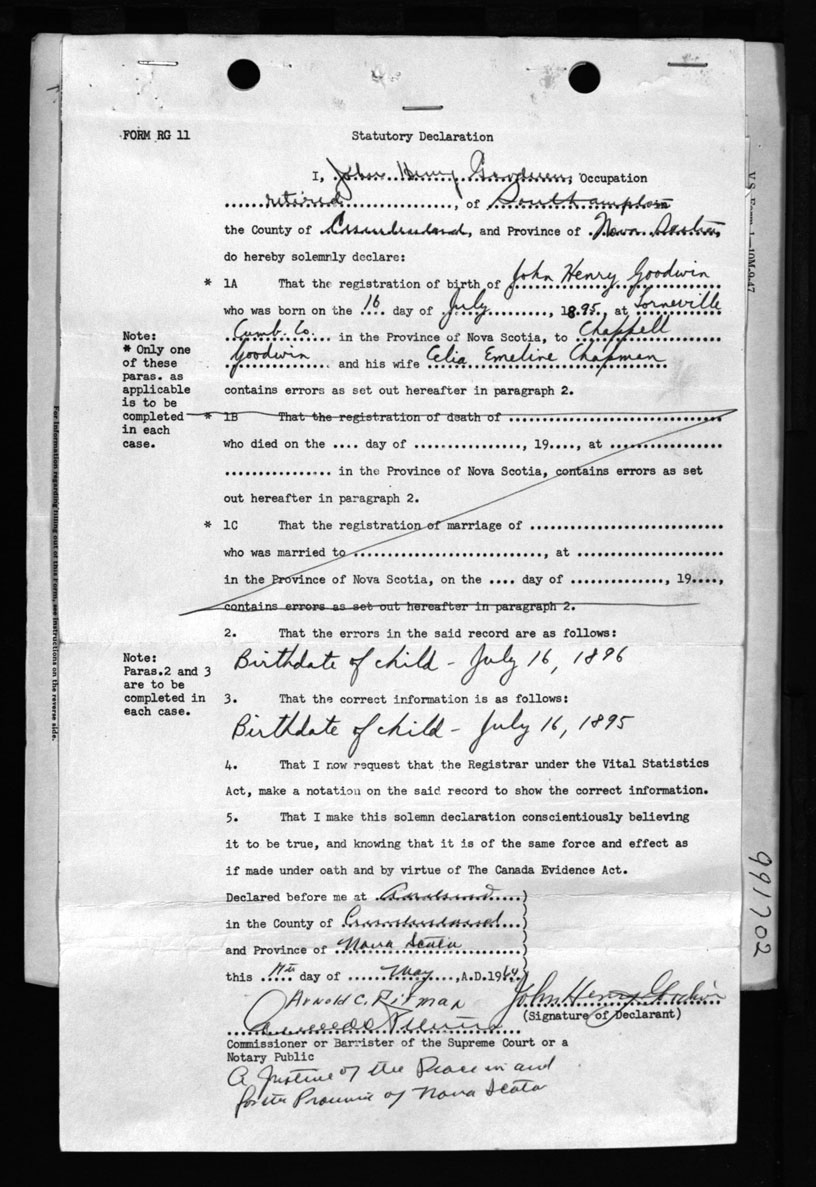 FORM RG 11
Statutory Declaration
I, John Henry Goodwin, Occupation
retired, of Southampton
the County of Cumberland, and Province of Nova Scotia,
do hereby solemnly declare:
* 1A That the registration of birth of John Henry Goodwin
who was born on the 16 day of July, 1895, at Lorneville
Cumb. Co. in the Province of Nova Scotia, to Chappell
Goodwin and his wife Celia Emeline Chapman
contains errors as set out hereafter in paragraph 2.
Note:
* Only one
of these
paras. as
applicable
is to be
completed
in each
case.
* 1B That the registration of death of ..............................
who died on the .... day of ..............., 19...., at ................
................ in the Province of Nova Scotia, contains errors as set
out hereafter in paragraph 2.
* 1C That the registration of marriage of ............................
who was married to ..........................., at .....................
in the Province of Nova Scotia, on the .... day of .............., 19....,
contains errors as set out hereafter in paragraph 2.
2. That the errors in the said record are as follows:
Birthdate of child - July 16, 1896
Note:
Paras.2 and 3
are to be
completed in
each case.
3. That the correct information is as follows:
Birthdate of child - July 16, 1895
4. That I now request that the Registrar under the Vital Statistics
Act, make a notation on the said record to show the correct information.
5. That I make this solemn declaration conscientiously believing
it to be true, and knowing that it is of the same force and effect as
if made under oath and by virtue of The Canada Evidence Act.
Declared before me at )
in the County of Cumberland )
and Province of Nova Scotia )
this day of May, A.D.1964 )
ARNOLD C. John Henry Goodwin
(Signature of Declarant)
Commissioner or Barrister of the Supreme Court or a
Notary Public
A Justice of the Peace in and
for the Province of Nova Scotia
V.S. Form 1—10M-9-47
For information regarding filling out of this Form, see instructions on the reverse side.
991702